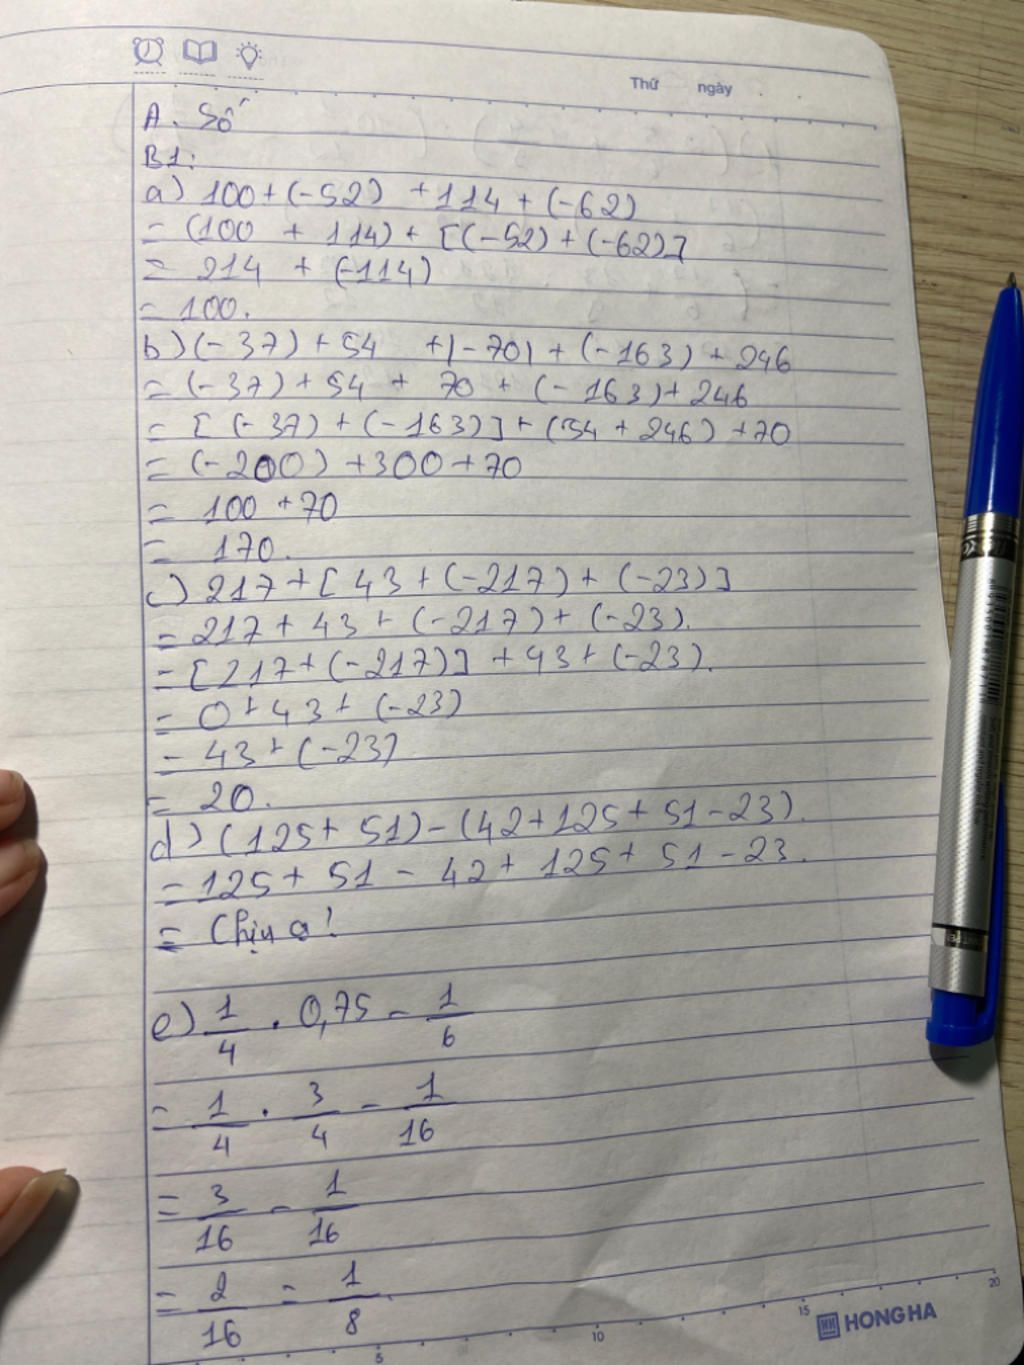 Thứ ngày
A. Số
B1:
a) 100 + (-52) + 114 + (-62)
= (100 + 114) + [(-52) + (-62)]
= 214 + (-114)
= 100.
b) (-37) + 54 + |-70| + (-163) + 246
= (-37) + 54 + 70 + (-163) + 246
= [(-37) + (-163)] + (54 + 246) + 70
= (-200) + 300 + 70
= 100 + 70
= 170.
c) 217 + [43 + (-217) + (-23)]
= 217 + 43 + (-217) + (-23).
= [217 + (-217)] + 43 + (-23).
= 0 + 43 + (-23)
= 43 + (-23)
= 20.
d) (125 + 51) - (42 + 125 + 51 - 23).
= 125 + 51 - 42 + 125 + 51 - 23.
= Chịu ạ!
e) 1/4 . 0,75 - 1/6
= 1/4 . 3/4 - 1/16
= 3/16 - 1/16
= 2/16 = 1/8.
HONG HA
5 10 15 20